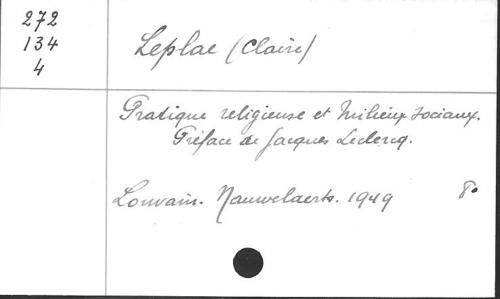 272
134
4
Leplae (Claire)
Pratique religieuse et Milieux sociaux.
Préface de Jacques Leclercq.
Louvain. Nauwelaerts. 1949 8°